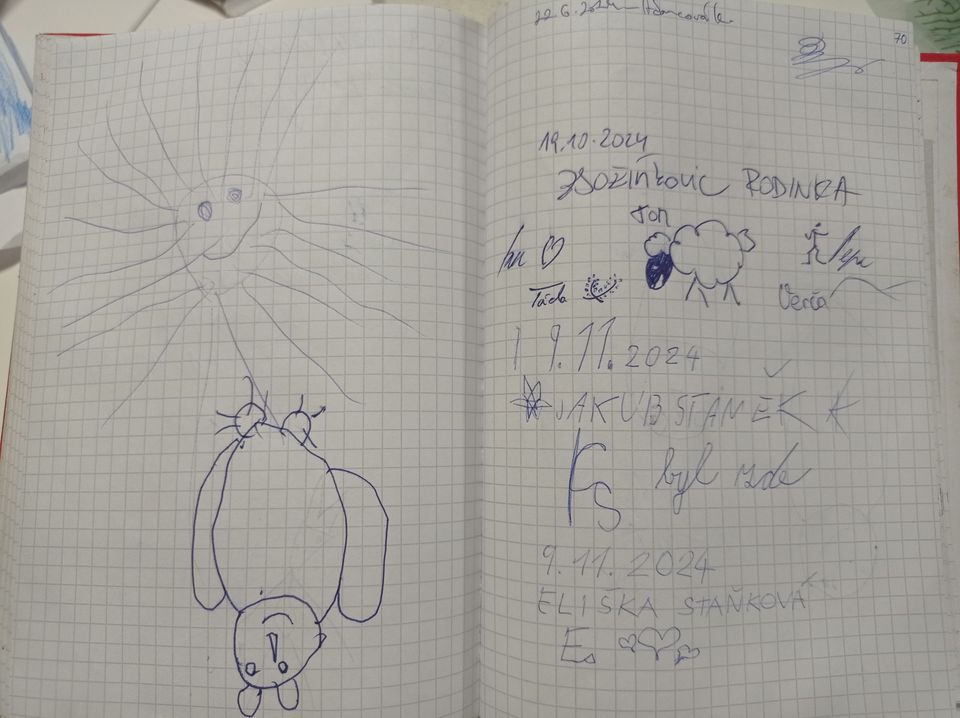 22.6.2024
70
19.10.2024
RODINKA
Ton
Táda
Verča
19.11.2024
JAKUB STANĚK
KS byl zde
9.11.2024
ELIŠKA STAŇKOVÁ
E.